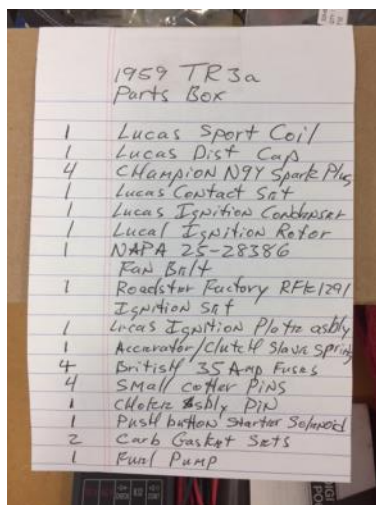 1959 TR3a
Parts Box
1 Lucas Sport Coil
1 Lucas Dist Cap
4 CHampion N9Y Spark Plug
1 Lucas Contact Set
1 Lucas Ignition Condenser
1 Lucal Ignition Rotor
1 NAPA 25-28386
Fan Belt
1 Roadster Factory RFK1291
Ignition Set
1 Lucas Ignition Plate asbly
1 Accerator/Clutch Slave Spring
4 British 35 Amp Fuses
4 Small cotter Pins
1 Asbly Pin
1 Push button Starter Solenoid
2 Carb Gasket Sets
1 Fuel Pump